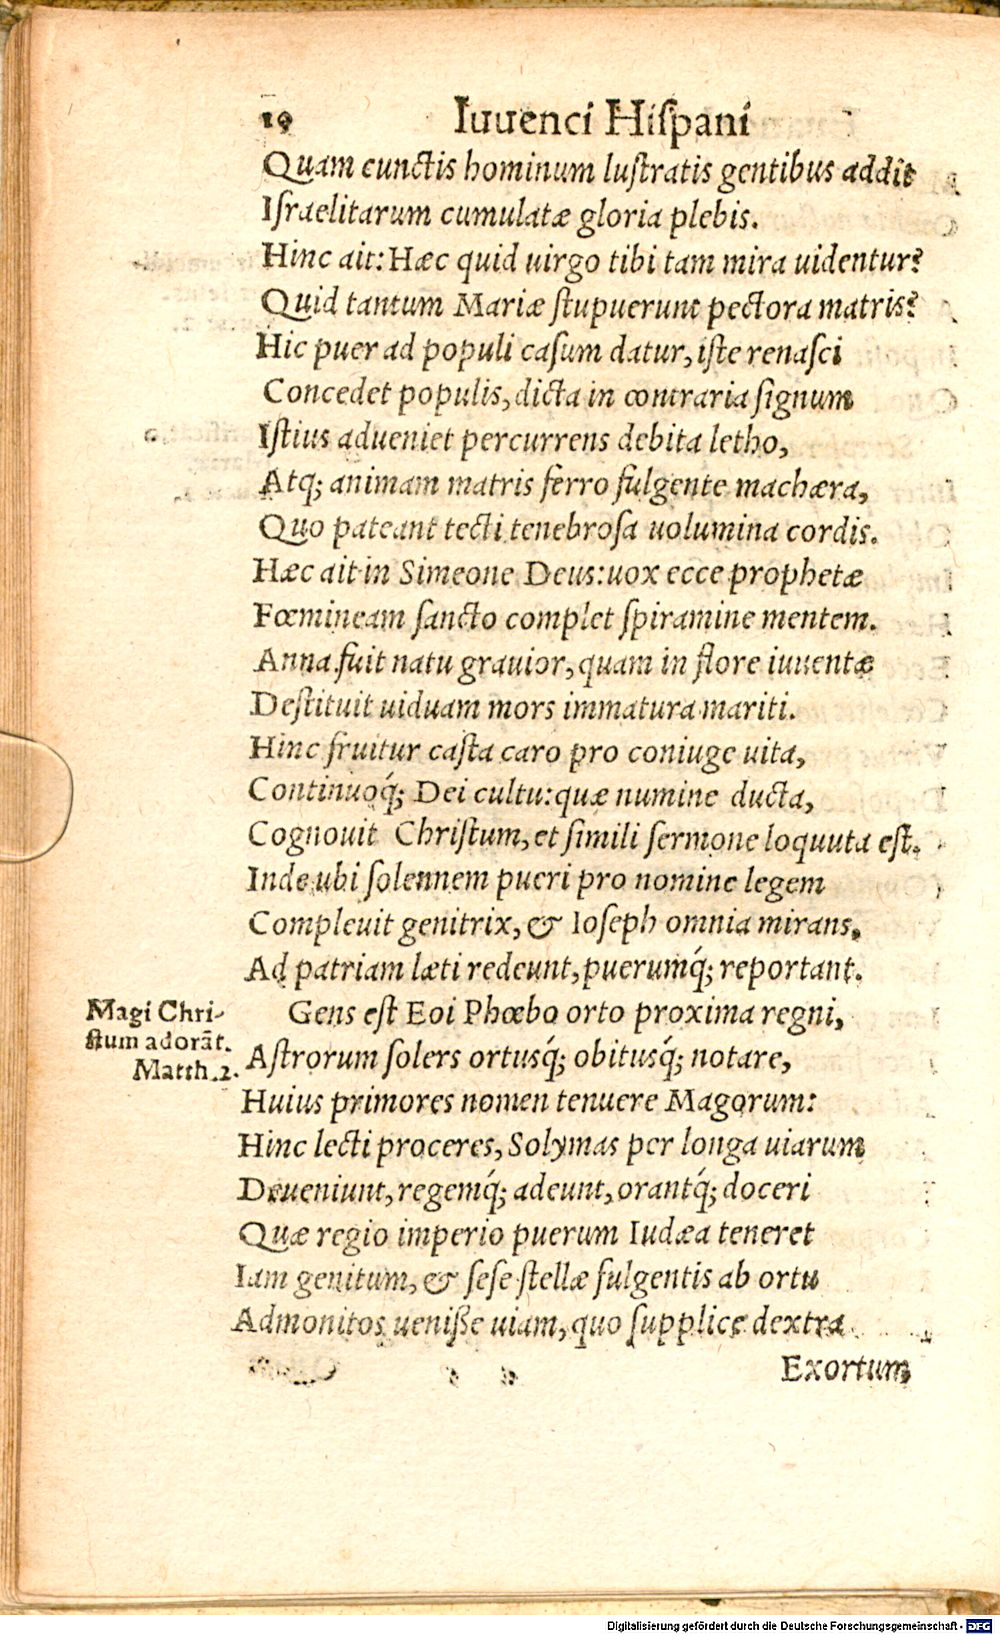 10 Iuuenci Hiſpani
Quam cunctis hominum luſtratis gentibus addit
Iſraelitarum cumulatæ gloria plebis.
Hinc ait: Hæc quid uirgo tibi tam mira uidentur?
Quid tantum Mariæ ſtupuerunt pectora matris?
Hic puer ad populi caſum datur, iſte renaſci
Concedet populis, dicta in contraria ſignum
Iſtius adueniet percurrens debita letho,
Atq; animam matris ferro fulgente machæra,
Quo pateant tecti tenebroſa uolumina cordis.
Hæc ait in Simeone Deus: uox ecce prophetæ
Fœmineam ſancto complet ſpiramine mentem.
Anna fuit natu grauior, quam in flore iuuentæ
Deſtituit uiduam mors immatura mariti.
Hinc fruitur caſta caro pro coniuge uita,
Continuoq́; Dei cultu: quæ numine ducta,
Cognouit Chriſtum, et ſimili ſermone loquuta eſt.
Inde ubi ſolennem pueri pro nomine legem
Compleuit genitrix, & Ioſeph omnia mirans,
Ad patriam læti redeunt, puerumq́; reportant.
Magi Chri-
ſtum adorāt.
Matth.2.
Gens eſt Eoi Phœbo orto proxima regni,
Aſtrorum ſolers ortusq́; obitusq́; notare,
Huius primores nomen tenuere Magorum:
Hinc lecti proceres, Solymas per longa uiarum
Deueniunt, regemq́; adeunt, orantq́; doceri
Quæ regio imperio puerum Iudæa teneret
Iam genitum, & ſeſe ſtellæ fulgentis ab ortu
Admonitos ueniſſe uiam, quo ſupplice dextra
Exortum
Digitalisierung gefördert durch die Deutsche Forschungsgemeinschaft - DFG